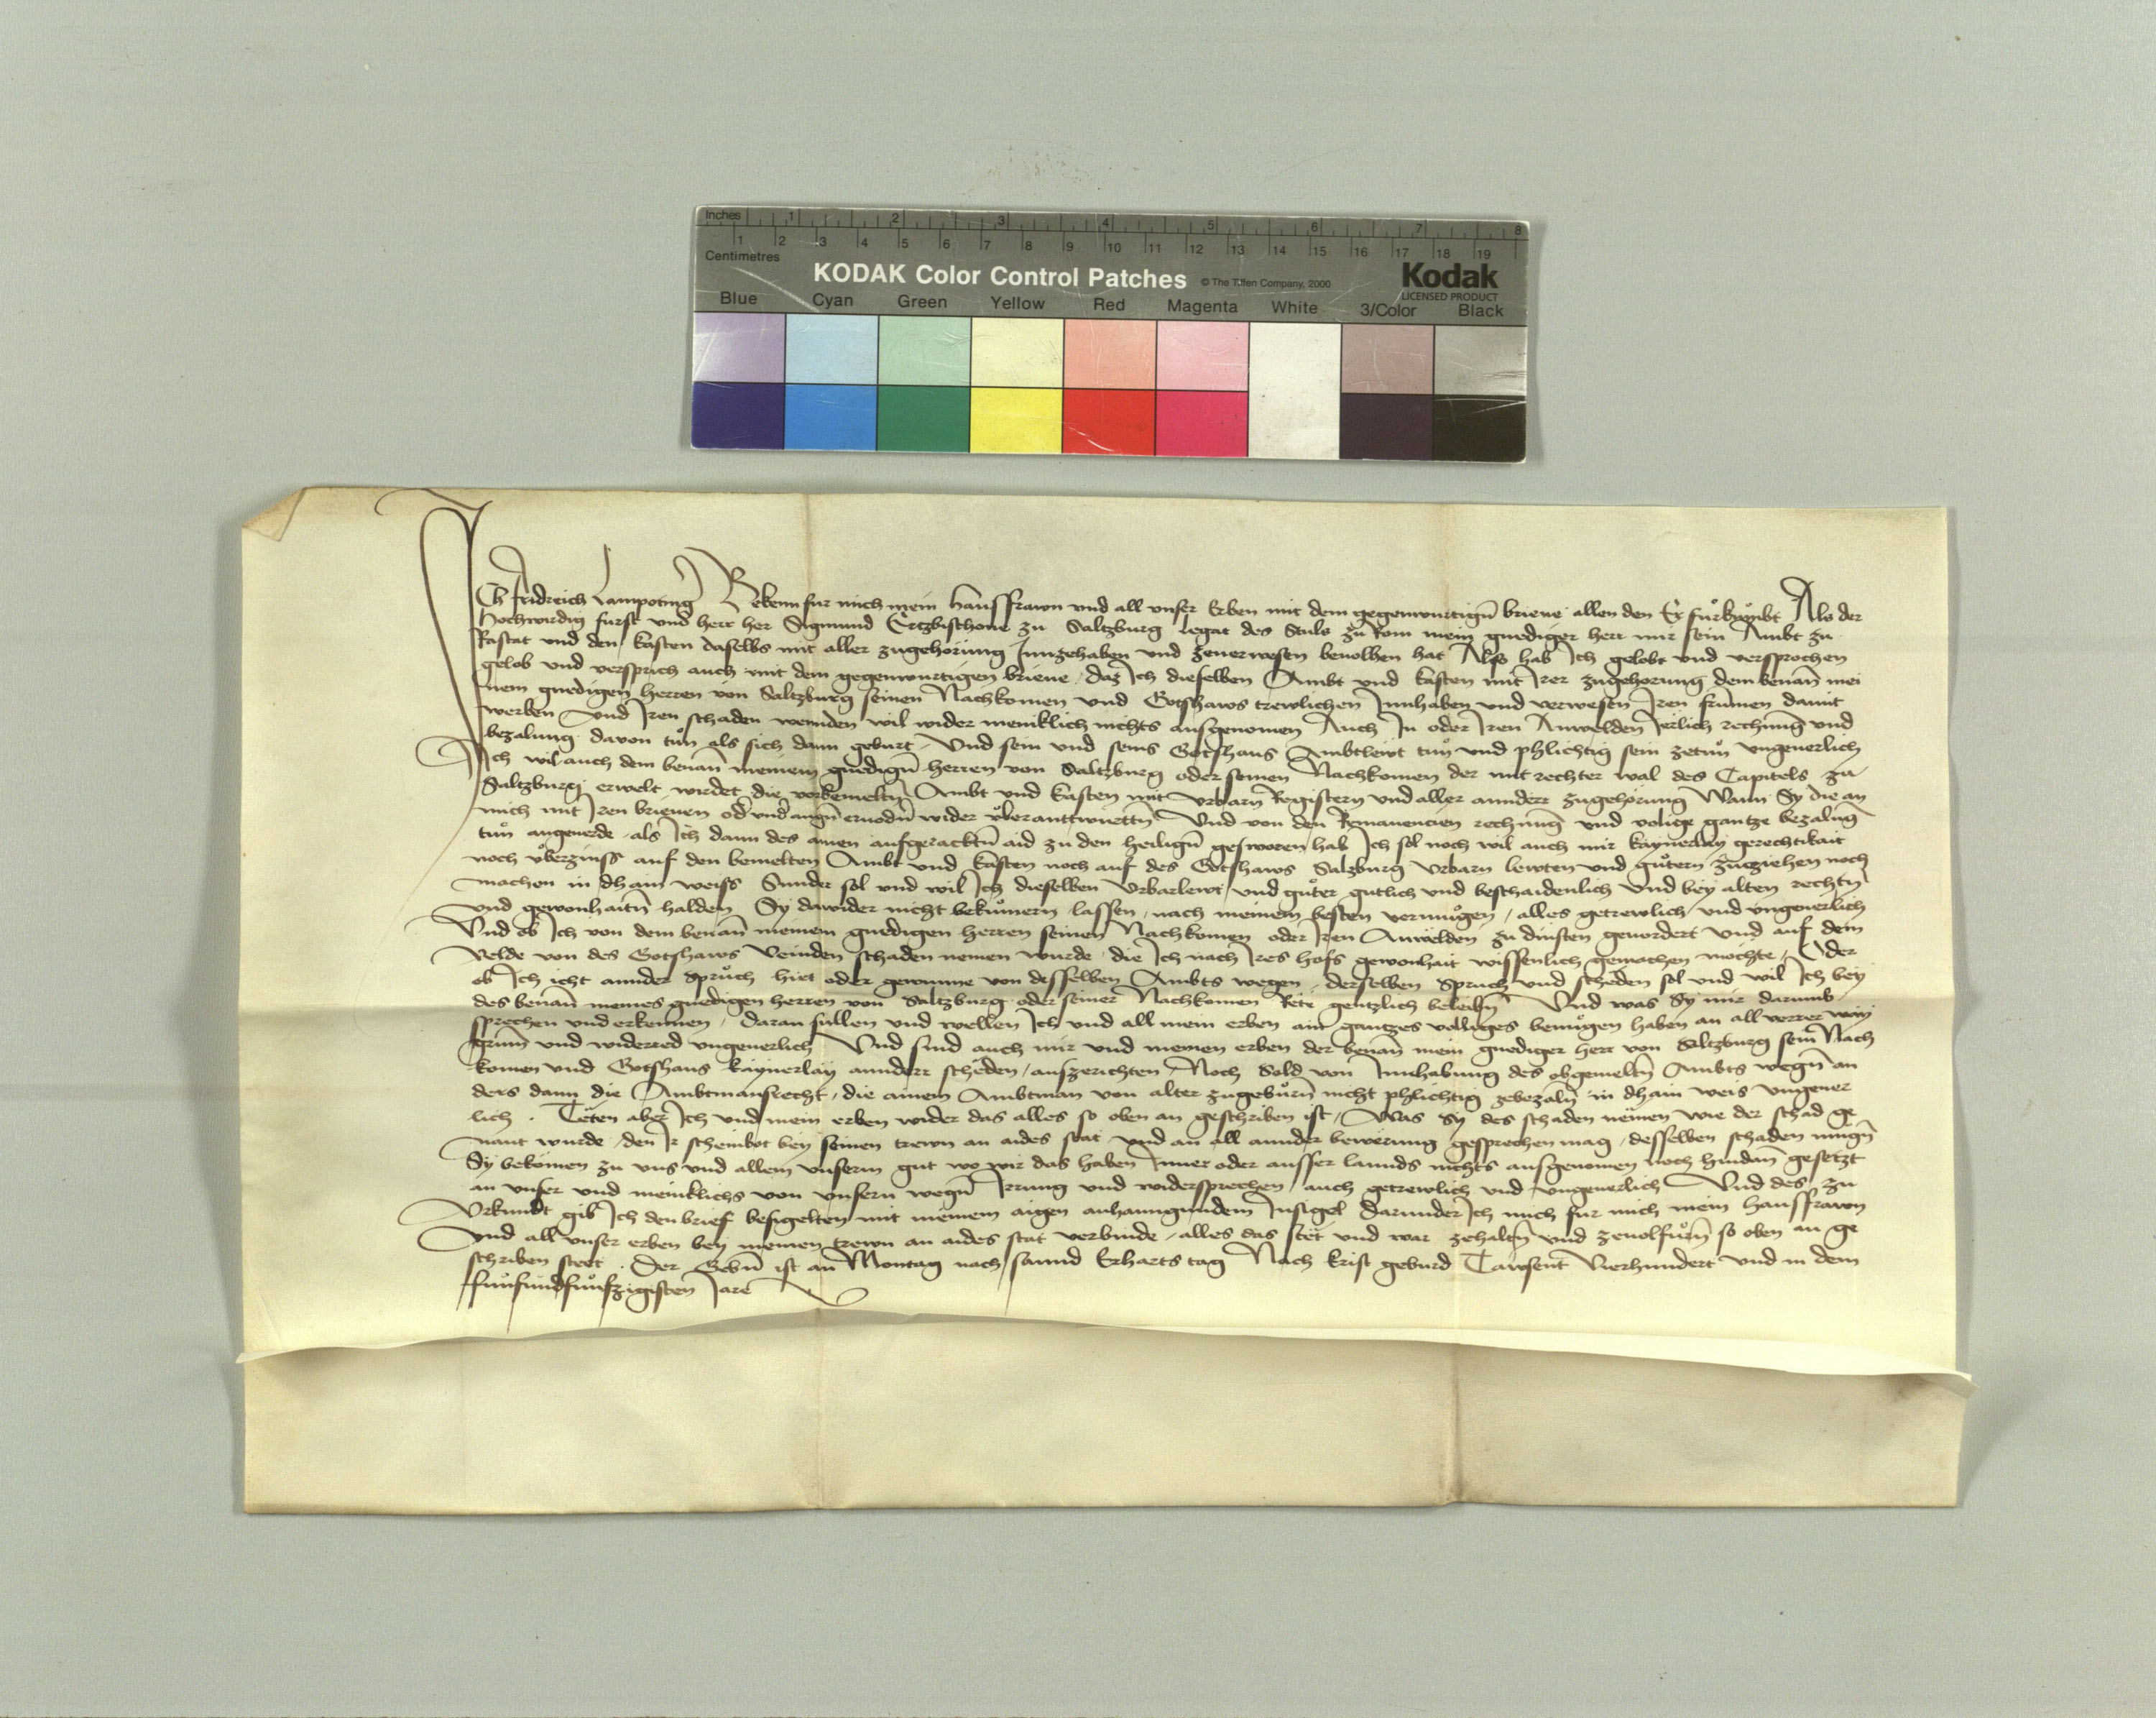 Inches 1 2 3 4 5 6 7 8
1 2 3 4 5 6 7 8 9 10 11 12 13 14 15 16 17 18 19
Centimetres
KODAK Color Control Patches © The Tiffen Company, 2000 Kodak
LICENSED PRODUCT
Blue Cyan Green Yellow Red Magenta White 3/Color Black
Ich fridreich Lampoting Bekenn fur mich mein haussfrawn vnd all vnser Erben mit dem gegenwurtign̄ brieue allen den Er fuͦrkuͦmbt Als der
Hochwirdig furst vnd herr her Sigmund Ertzbischoue zu Saltzburg legat des Stuls zu Rom mein gnediger herr mir sein Ambt zu
Rastat vnd den kasten daselbs mit aller zugehörung Innzehaben vnd zeuerwesen beuolhen hat Also hab Ich gelobt vnd versprochen
gelob vnd versprich auch mit dem gegenwurtigen brieue / daz Ich dieselben Ambt vnd kasten mit Irer zugehorung dem benan̄ mei
nem gnedigen herren von Saltzburg seinen Nachkomen vnd Gotshaws trewlichen Innhaben vnd verwesen Iren frumen damit
werben vnd Iren schaden wennden wil wider meniklich nichts ausgenomen Auch In oder Iren Anwelden Ierlich rechnung vnd
bezalung dauon tuͦn als sich dann geburt / Vnd sein vnd seins Gotshaus Ambtlewt tuͦn vnd phlichtig sein zetuͦn vngeuerlich
Ich wil auch dem benan̄ meinem gnedign̄ herren von Saltzburg oder seinen Nachkomen der mit rechter wal des Capitels zu
Saltzburg erwelt wirdet die vorbemeltn̄ Ambt vnd kasten mit vrbarn Registern vnd aller annderr zugehörung Wann Sy die an
mich mit Iren brieuen od' vnd' augn̄ eruodn̄ wider vͦberanttwurttn̄ Vnd von den Remanencien rechnung vnd volige gantze bezalūg
tuͦn angeuerde / als Ich dann des ainen aufgeracktn̄ aid zu den heilign̄ gesworen hab Ich sol noch wil auch mir kaynerlay gerechtikait
noch vͦberzinss auf den bemelten Ambt vnd kasten noch auf des Gotshaws Salzburg vrbarn lewten vnd guͦtern zuziehen noch
machen in dhain weiss Sunder sol vnd wil Ich dieselben Vrbarlewt vnd guͦter gutlich vnd beschaidenlich vnd bey alten rechtn̄
vnd gewonhaitn̄ halden Sy dawider nicht bekuͦmern lassen / nach meinem besten vermuͦgen / alles getrewlich vnd vngeuerlich
Vnd ob Ich von dem benan̄ meinem gnedigen herren seinen Nachkomen oder Iren Anwelden zu dinsten geuordert vnd auf dem
velde von des Gotshaws Veinden schaden nemen wurde / die Ich nach Ires hofs gewonhait wissenlich gemachen möchte / Oder
ob Ich icht annder Spruͦch hiet oder gewunne von desselben Ambts wegen / derselben Spruch vnd scheden sol vnd wil Ich bey
des benan̄ meines gnedigen herren von Saltzburg oder seiner Nachkomen Rete gentzlich beleibn̄ Vnd was Sy mir darumb
sprechen vnd erkennen / daran sullen vnd wellen Ich vnd all mein erben ain gantzes volligs benuͦgen haben an all verrer way
grum̄ vnd widerred vngeuerlich Vnd sind auch mir vnd meinen erben der benan̄ mein gnediger herr von Saltzburg sein Nach
komen vnd Gotshaus kaynerlay annderr scheden / auszerichten Noch Sold von Innhabung des obgemeltn̄ Ambts wegn̄ an
ders dann die Ambtmansrecht / die ainem Ambtman von alter zugebuͦrn̄ nicht phlichtig zebezaln̄ in dhain weis vngeuer
lich . Teten aber Ich vnd mein erben wider das alles so oben an geschriben ist / Was Sy des schaden nemen wie der schad ge
nant wurde / den Ir scheinbot bey seinen trewn an aides stat vnd an all annder bewerung gesprechen mag / desselben schaden mugn̄
Sy bekomen zu vns vnd allem vnserm gut wo wir das haben Inner oder ausser lannds nichts ausgenomen noch hindan̄ gesetzt
an vnser vnd meniklichs von vnsern wegn̄ Irrung vnd widersprechen / auch getrewlich vnd vngeuerlich Vnd des zu
Vrkundt gib Ich den brief besigelten mit meinem aigen anhanngundem Insigel darunder Ich mich fur mich mein haussfrawn
vnd all vnser erben bey meinen trewn an aides stat verbinde / alles das stët vnd war zehaltn̄ vnd zeuolfuͦrn̄ so oben an ge
schriben steet . Der Gebn̄ ist an Montag nach sannd Erharts tag Nach krist geburd Tawsent Vierhundert vnd in dem
fuͦnfundfuͦnfzigisten Iare